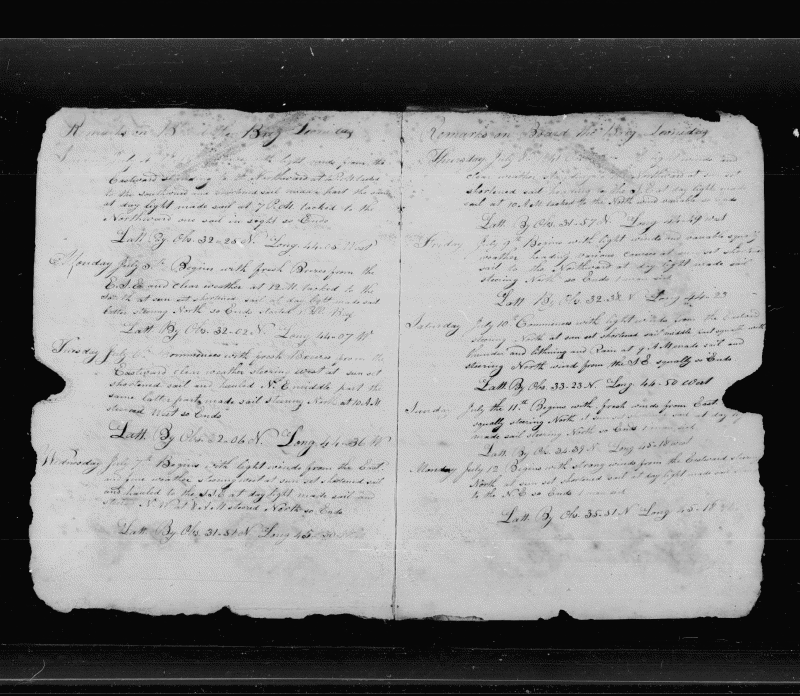 Remarks on Board the Brig
with light winds from the
Eastward steering to the Northward at 12 PM tacked
to the southward
at day light made sail at 7 PM tacked to the
Northward one sail in sight so Ends
Latt By Obs. 32-25 N. Long 44-05 West
Monday July 5th Begins with fresh Breezes from the
E.S.E and clear weather at 12 M tacked to the
at sun set shortened sail at day light made sail
Latter steering North so Ends
Latt By Obs. 32-02 N. Long 44-07 W
Tuesday July 6th Commences with fresh Breezes from the
Eastward clear weather steering West at sun set
shortened sail and hauled N.E middle part the
same latter part made sail steering North at 10 AM
steered West so Ends
Latt. By Obs. 32-06 N. Long 44-36 W
Wednesday July 7th Begins with light winds from the East
and fine weather steering west at sun set shortened sail
and hauled to the S.S.E at day light made sail and
AM steered North so Ends
Latt By Obs. 31-51 N Long 45-30
Remarks on Board the Brig
Thursday July 8th
clear weather Northward at sun set
shortened sail heading to the S.E at day light made
sail at 10 AM tacked to the North wind variable so Ends
Latt By Obs. 31-57 N. Long 44-49 West
Friday July 9th Begins with light winds and variable squally
weather heading various courses at sun set
sail to the Northward at day light made sail
steering North so Ends
Latt By Obs 32-38 N Long 44-23
Saturday July 10th Commences with light winds from the Eastward
steering North at sun set shortened sail middle part squally with
thunder and lithining and Rain at 9 AM made sail and
steering North wind from the S.E squally so Ends
Latt By Obs 33-23 N. Long 44-50 West
Sunday July the 11th Begins with fresh winds from East
squally steering North at sunset sail at day light
made sail steering North so Ends
Latt By Obs. 34-39 N. Long 45-18 West
Monday July 12 Begins with strong winds from the Eastward steering
North at sun set shortened sail at day light made sail
to the N.E so Ends
Latt. By Obs. 35-51 N Long 45-18